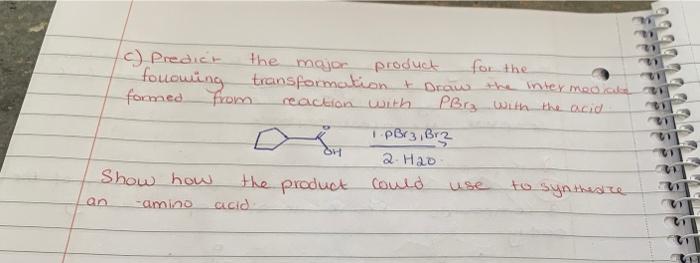 c) Predict the major product for the
following transformation + Draw the intermediate
formed from reaction with PBr3 with the acid.
O
OH
1. PBr3, Br2
2. H2O.
Show how the product could use to synthesize
an -amino acid.